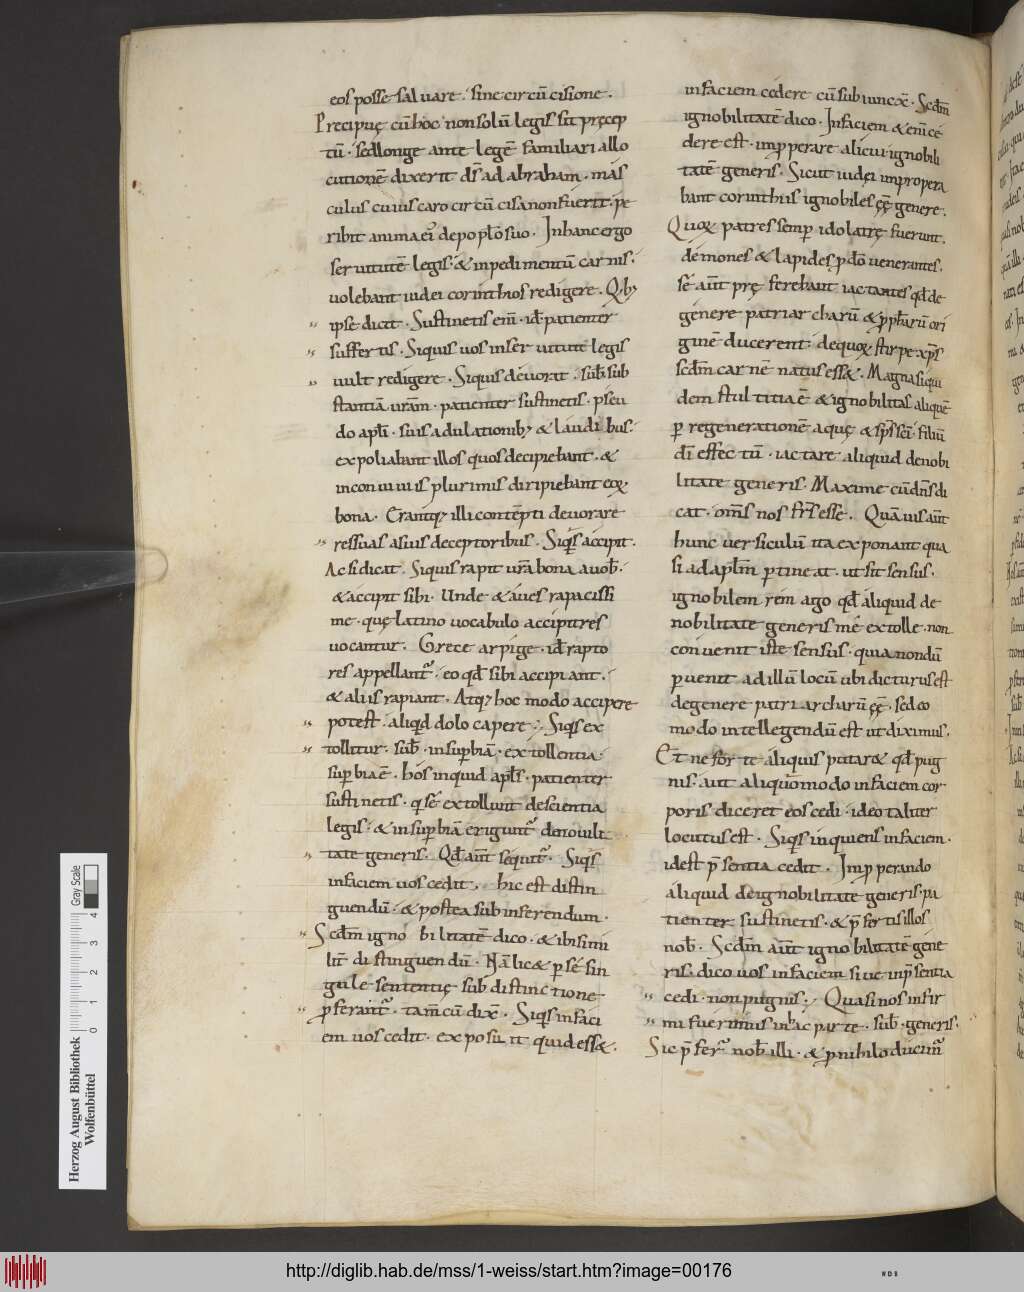 eos posse saluare. sine circū cisione.
Precipuę cū hoc non solū legis sit pręcep
tū. sed longe ante legē familiari allo
cutionē dixerit d̄s ad abraham. mas
culus cuius caro circū cisa non fuerit. pe
ribit anima ei᷎ de pop̄lo suo. In hanc ergo
seruitutē legis. & inpedimentū carnis.
uolebant iudei corinthios redigere. Q;b;
ipse dicit. Sustinetis eni̅. id̄ patienter
suffertis. Siquis uos in seruitutē legis
uult redigere. Siquis deuorat. sub̄ sub
stantiā urām. patienter sustinetis. pseu
do apl̄i. suis adulationib; & laudibus.
expoliabant illos quos decipiebant. &
in conuiuiis plurimis diripiebant eoꝝ
bona. Erantq; illi contēpti deuorare
res suas a suis deceptoribus. Siq̄s accipit.
Ac si dicat. Siquis rapit urā bona a uob̄.
& accipit sibi. Unde & aues rapacissi
me. quę latino uocabulo accipitres
uocantur. Grece arpige. id̄ rapto
res appellant᷑. eo qd̄ sibi accipiant.
& aliis rapiant. Atq; hoc modo accipere
potest. aliqd dolo capere. Siq̄s ex
tollitur. sub̄. in sup̄biā. extollentia
sup̄bia ē. hos inquid apl̄s. patienter
sustinetis. q̄ se extollunt de scientia
legis. & in sup̄biā erigunt᷑ de nobili
tate generis. Qd̄ aūt sequit᷑. Siq̄s
in faciem uos cedit. hic est distin
guendū. & postea sub inferendum.
Scd̄m igno bilitatē dico. & ibi simi
lit̄ distinguendū. Nā lic& per se sin
gule sententię sub distinctione
p̄ferant᷑. tam̄ cū dix̄. Siq̄s in faci
em uos cedit. exposuit quid ess&.
in faciem cedere cū subiunx̄. Scd̄m
ignobilitatē dico. In faciem & eni̅ ce
dere est. imp̄perare alicui ignobili
tatē generis. Sicut iudęi impropera
bant corinthiis ignobiles ęę̄ genere.
Quoꝝ patres semp̄ idolatrę fuerunt.
demones & lapides p̄ dō uenerantes.
se aūt prę ferebant iactantes qd̄ de
genere patriarcharū & p̄ph̄arū ori
ginē ducerent. de quoꝝ stirpe xp̄s
scd̄m carnē natus ess&. Magna siqui
dem stultitia ē & ignobilitas aliquē
p̄ regenerationē aquę & sp̄s sc̄i. filiū
dī effectū. iactare aliquid de nobi
litate generis. Maxime cū dn̄s di
cat. om̄s nos fr̄s esse. Quāuis aūt
hunc uersiculū ita exponant qua
si ad apl̄m p̄tineat. ut sit sensus.
ignobilem rem ago qd̄ aliquid de
nobilitate generis me extolle. non
conuenit iste sensus. quia nondū
p̄uenit ad illū locū ubi dicturus est
de genere patriarcharū ęę̄. sed eo
modo intellegendū est ut diximus.
Et ne forte aliquis putar& qd̄ pug
nis. aut aliquo modo in faciem cor
poris diceret eos cedi. ideo taliter
locutus est. Siq̄s inquiens in faciem.
id est p̄sentia cedit. Imp̄perando
aliquid de ignobilitate generis. pa
tienter sustinetis. & p̄fertis illos
nob̄. Scd̄m aūt ignobilitatē gene
ris. dico uos in faciem siue in p̄sentia
cedi. non pugnis. Quasi nos infir
mi fuerimus in hac parte. sub̄. generis.
Sic p̄fer᷑ nob̄ illi. & p̄ nihilo ducim᷎
Herzog August Bibliothek
Wolfenbüttel
Gray Scale
0 1 2 3 4
http://diglib.hab.de/mss/1-weiss/start.htm?image=00176